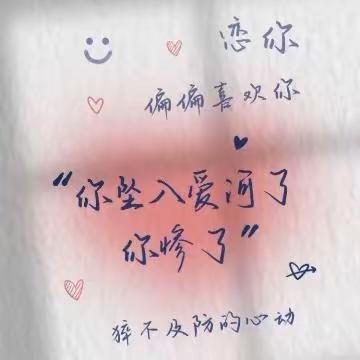 恋你
偏偏喜欢你
“你坠入爱河了
你惨了”
猝不及防的心动